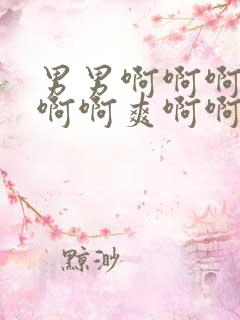 男男啊啊啊
啊啊爽啊啊
黥渺